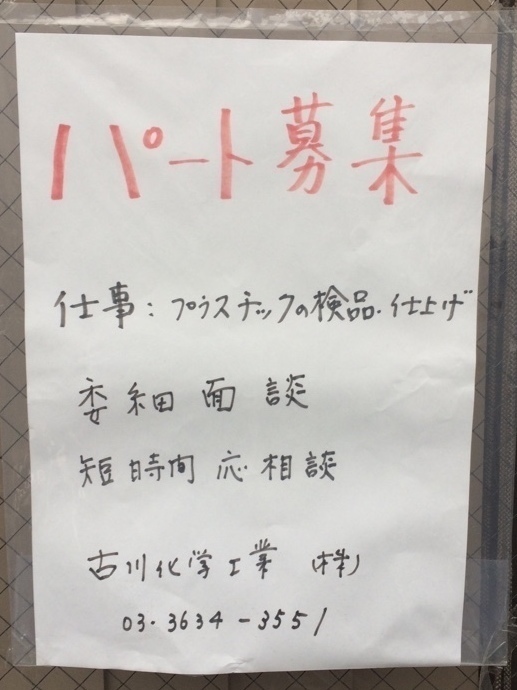 パート募集
仕事：プラスチックの検品.仕上げ
委細面談
短時間応相談
古川化学工業（株）
03.3634-3551